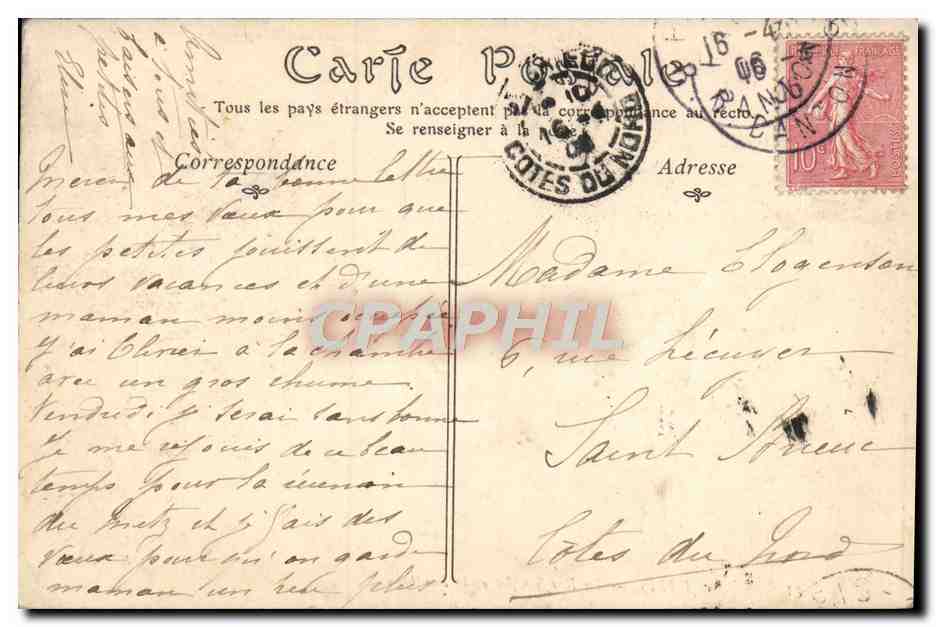 Carte Postale
Tous les pays étrangers n'acceptent pas la correspondance au recto.
Se renseigner à la
Correspondance
Adresse
Merci de ta bonne lettre
tous mes vœux pour que
les petites jouissent de
leurs vacances et d'une
maman moins occupée
J'ai Olivier à la chambre
avec un gros rhume.
Vendredi je serai sans bonne
Je me réjouis de ce beau
temps pour la réunion
du Metz et je fais des
vœux pour qu'on garde
maman un peu plus.
Amitiés
à tous et
baisers aux
petits
Madame Clogenson
6, rue Lécuyer
Saint Brieuc
Côtes du Nord
CPAPHIL
COTES DU NORD
16 -4
06
REPUBLIQUE FRANÇAISE
10c
POSTES